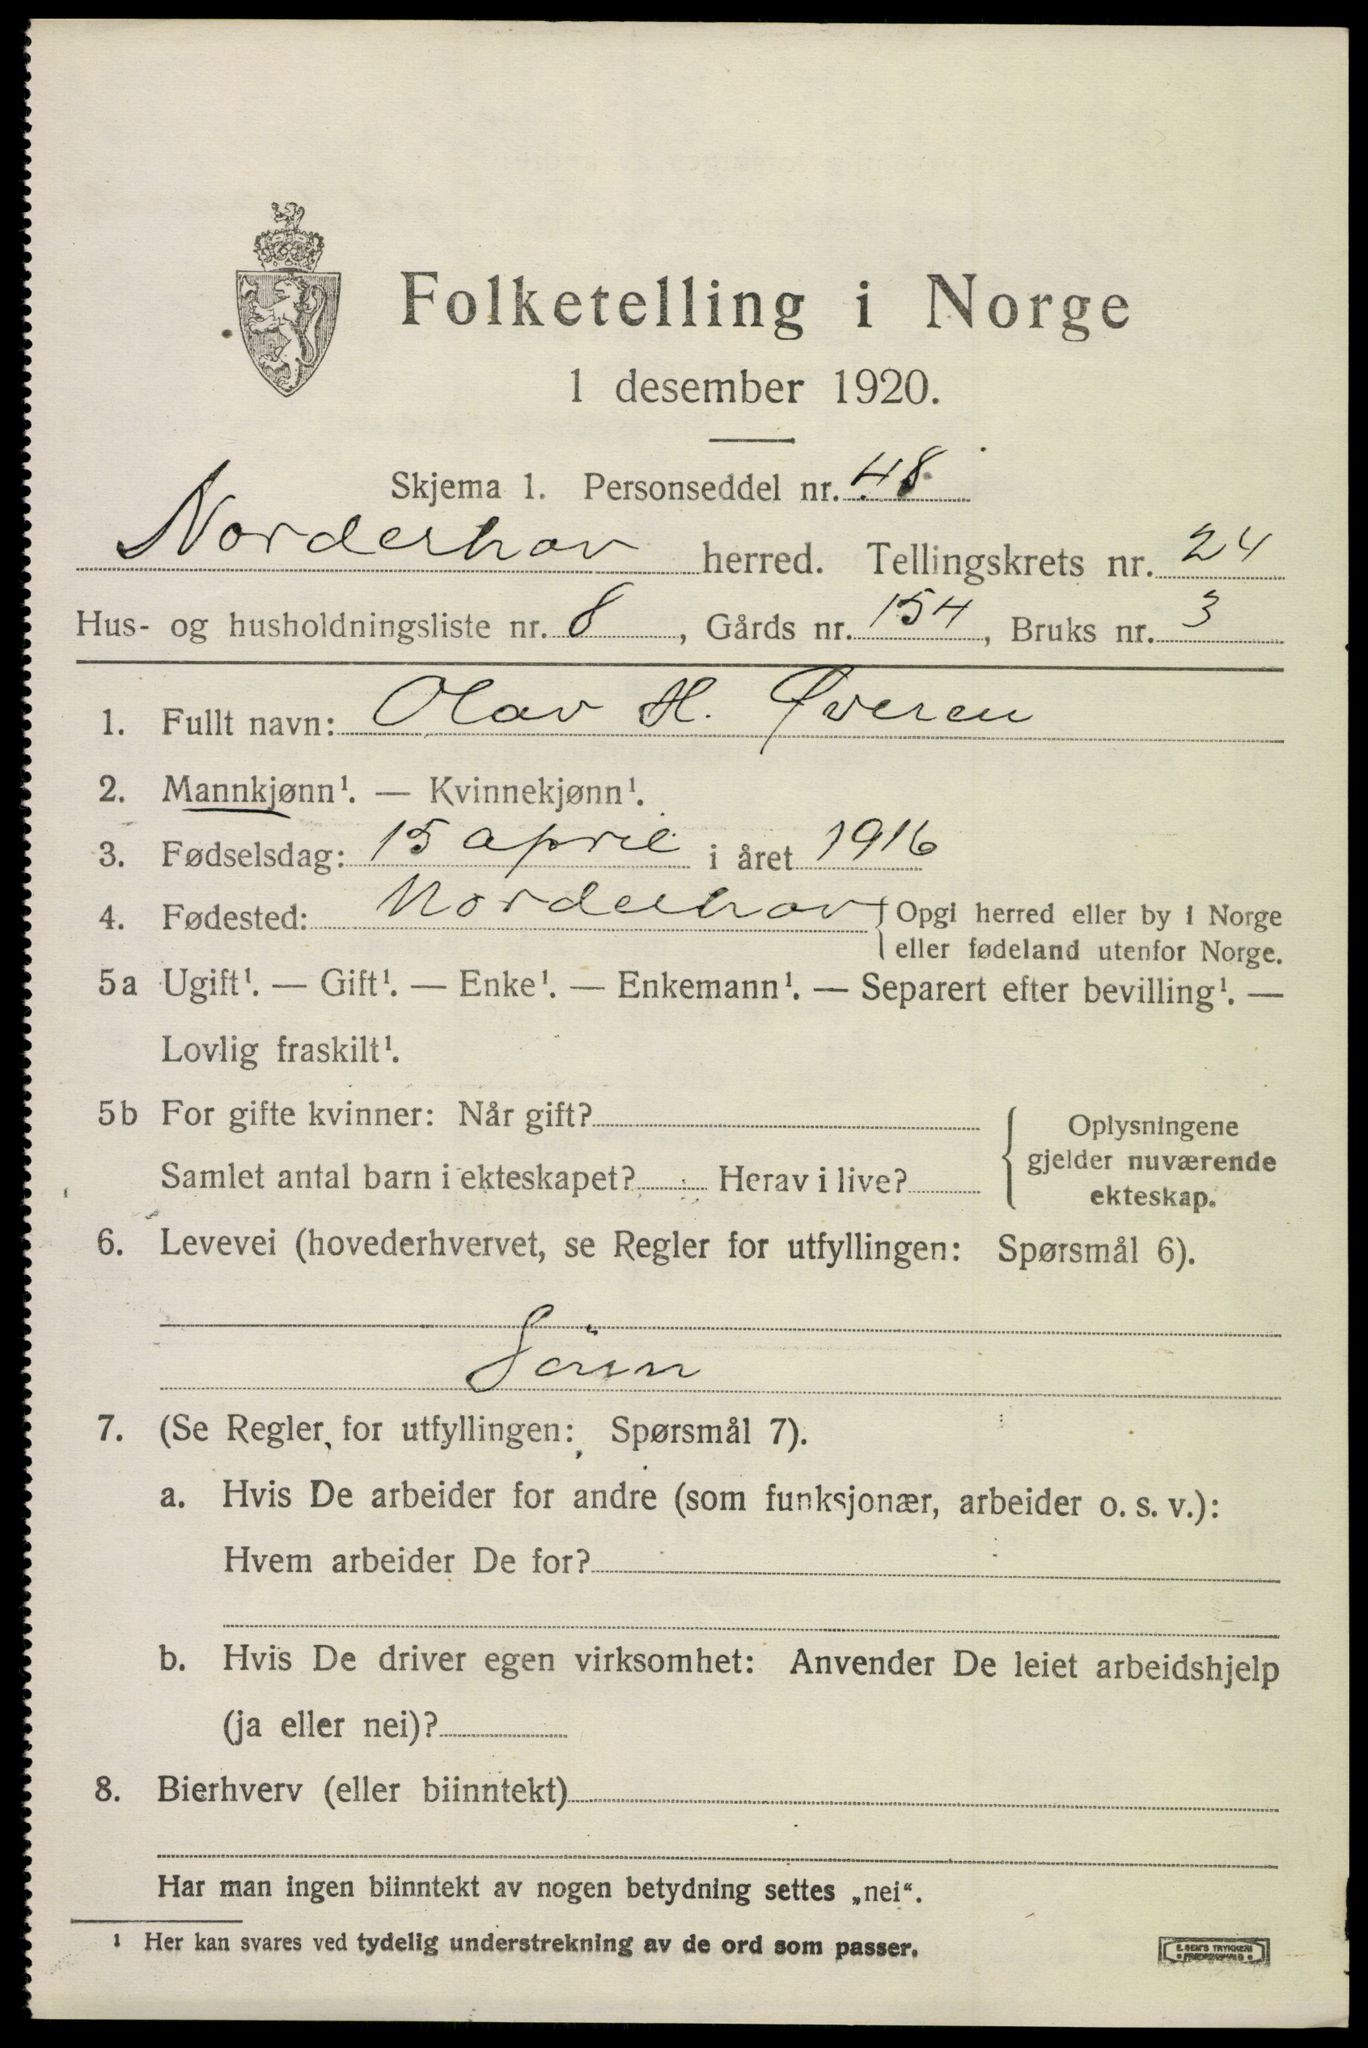 Folketelling i Norge
1 desember 1920.
Skjema 1. Personseddel nr. 48
Norderhov herred. Tellingskrets nr. 24
Hus- og husholdningsliste nr. 8, Gårds nr. 154, Bruks nr. 3
1. Fullt navn: Olav H. Øveren
2. Mannkjønn¹. — Kvinnekjønn¹.
3. Fødselsdag: 15 april i året 1916
4. Fødested: Norderhov {Opgi herred eller by i Norge
eller fødeland utenfor Norge.
5a Ugift¹. — Gift¹. — Enke¹. — Enkemann¹. — Separert efter bevilling¹. —
Lovlig fraskilt¹.
5b For gifte kvinner: Når gift?
Samlet antal barn i ekteskapet? Herav i live?
Oplysningene
gjelder nuværende
ekteskap.
6. Levevei (hovederhvervet, se Regler for utfyllingen: Spørsmål 6).
Sönn
7. (Se Regler for utfyllingen: Spørsmål 7).
a. Hvis De arbeider for andre (som funksjonær, arbeider o. s. v.):
Hvem arbeider De for?
b. Hvis De driver egen virksomhet: Anvender De leiet arbeidshjelp
(ja eller nei)?
8. Bierhverv (eller biinntekt)
Har man ingen biinntekt av nogen betydning settes „nei“.
¹ Her kan svares ved tydelig understrekning av de ord som passer.
E. SEM'S TRYKKERI
FREDRIKSHALD